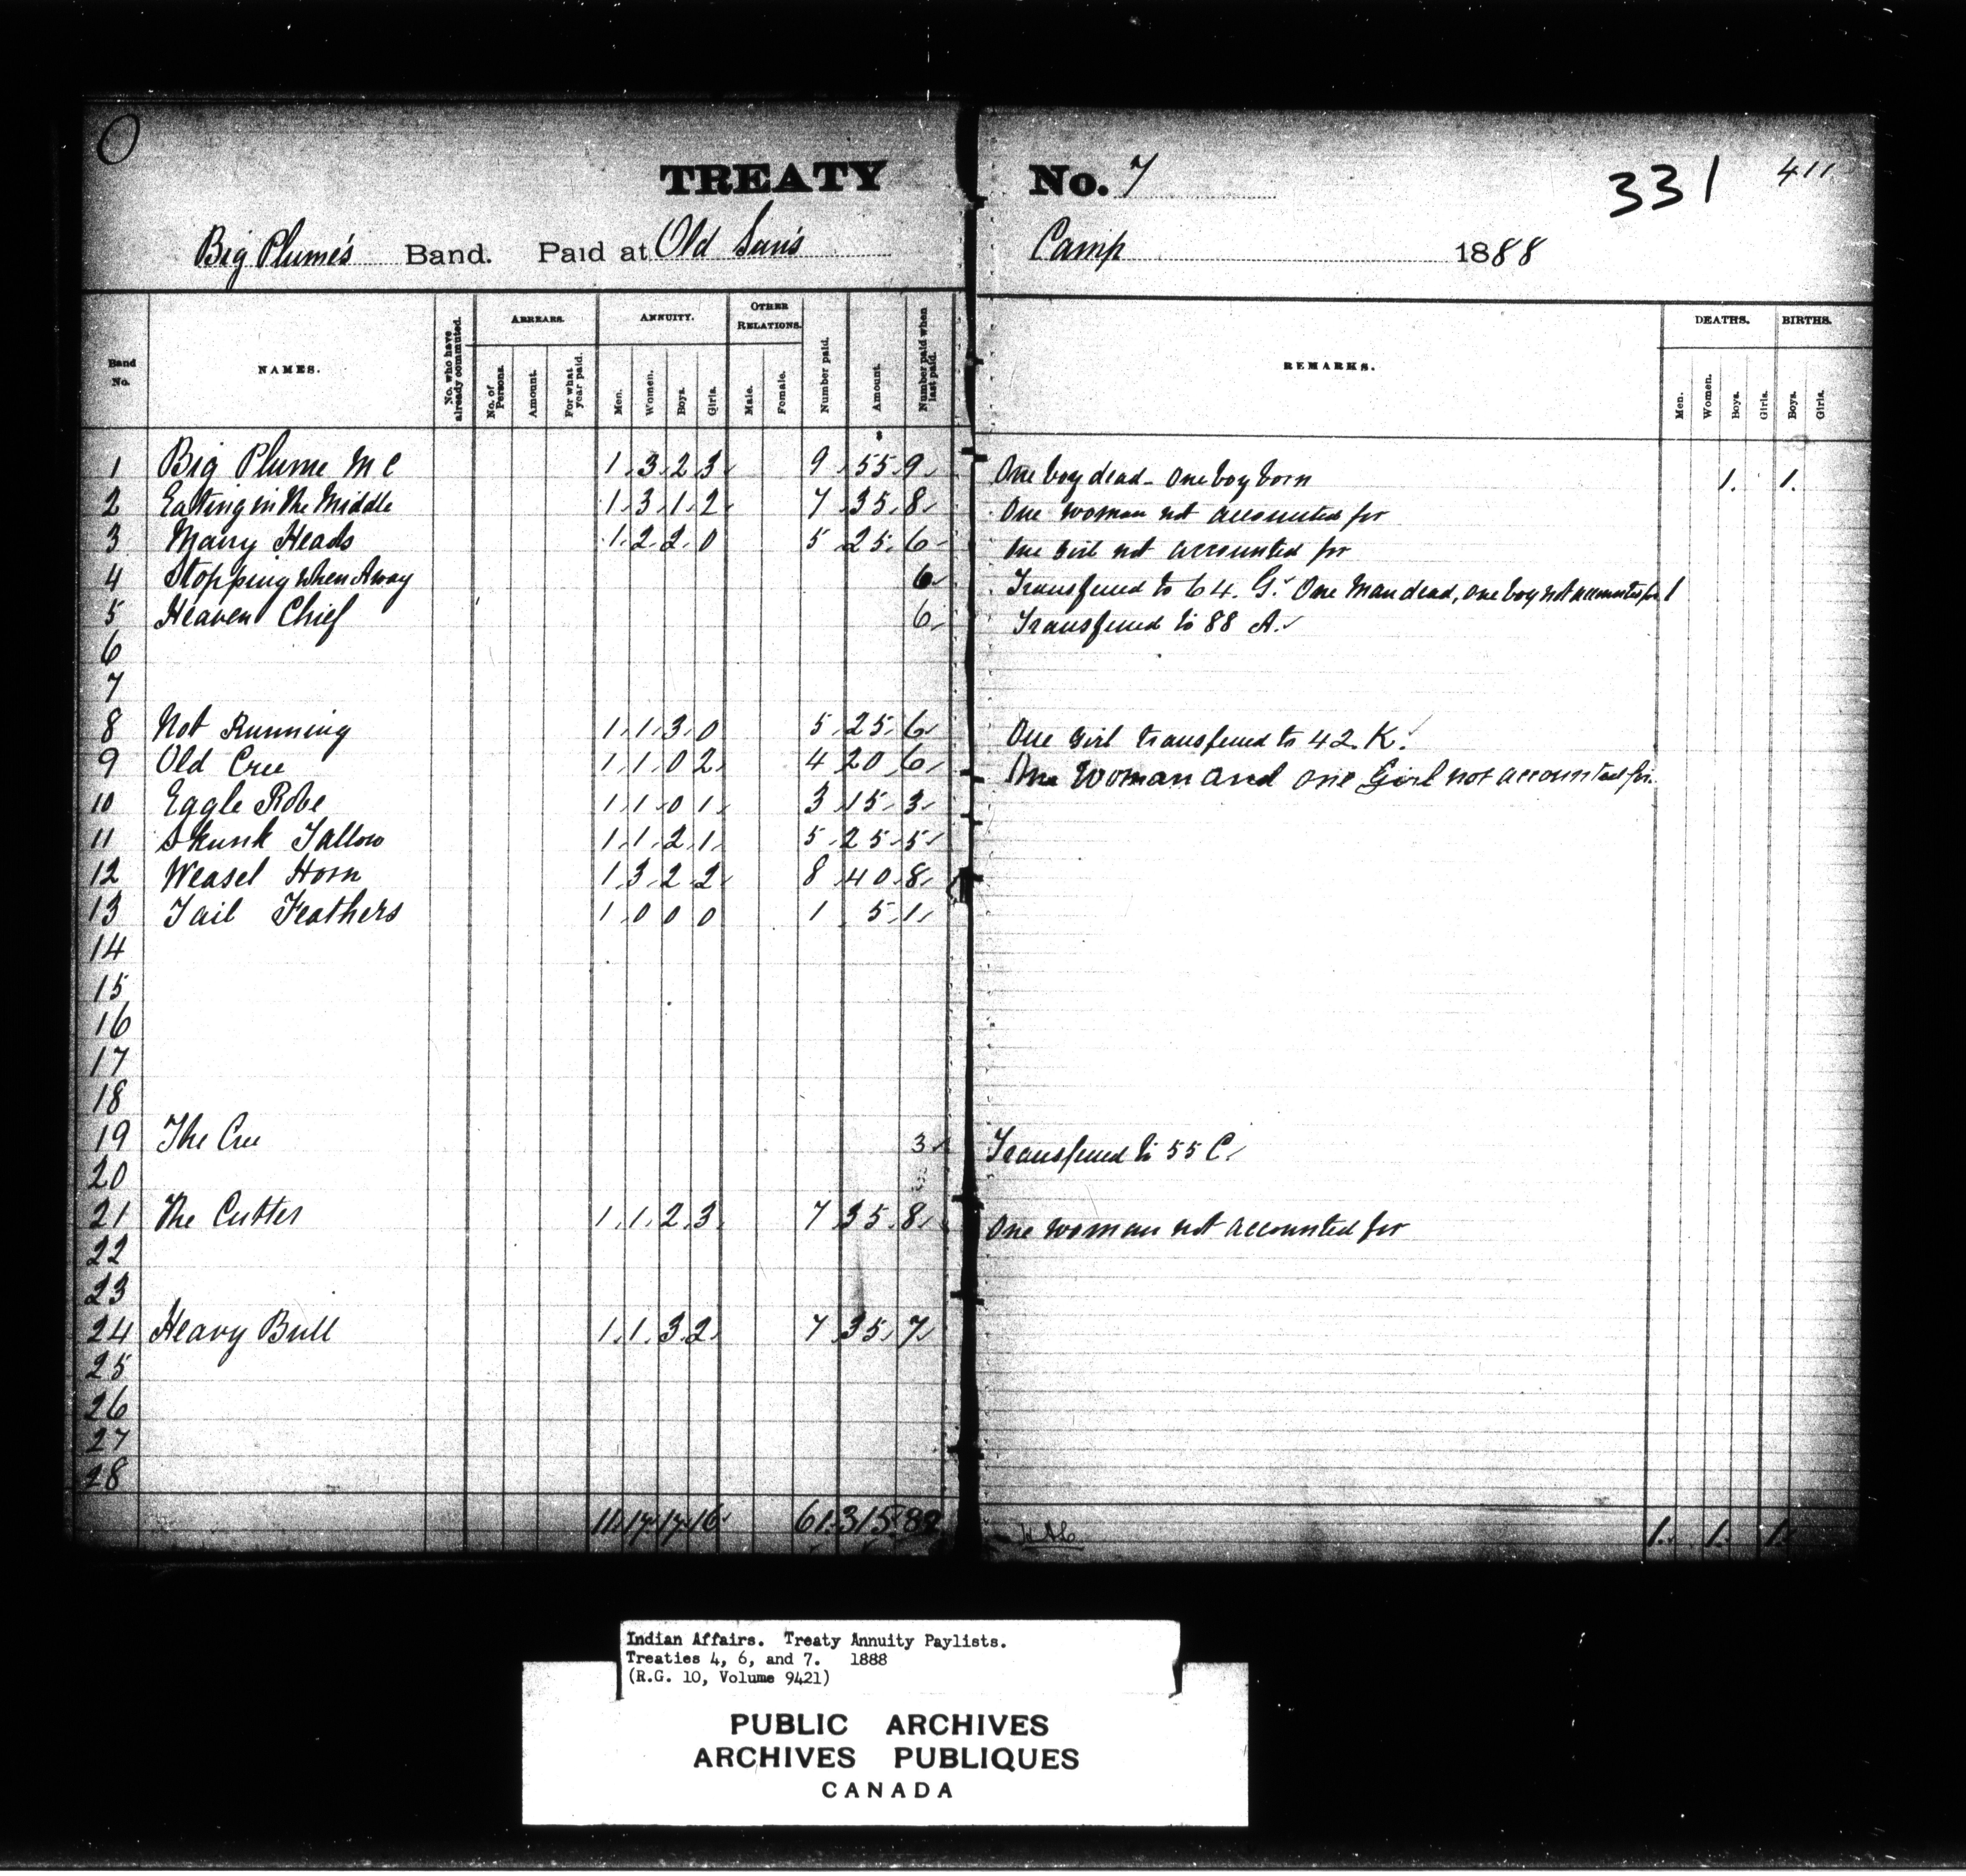 O
TREATY No. 7 331 411
Big Plume's Band. Paid at Old Sun's Camp 1888
Band No. NAMES. No. who have already commuted. ARREARS. No. of Persons. Amount. For what year paid. ANNUITY. Men. Women. Boys. Girls. OTHER RELATIONS. Male. Female. Number paid. Amount. Number paid when last paid. REMARKS. DEATHS. Men. Women. Boys. Girls. BIRTHS. Boys. Girls.
$
1 Big Plume M C 1 3 2 3 9 55 9 One boy dead - One boy born 1. 1.
2 Eating in the Middle 1 3 1 2 7 35 8 One woman not accounted for
3 Many Heads 1 2 2 0 5 25 6 One girl not accounted for
4 Stopping when Away 6 Transferred to 64. G. One Man dead, one boy not accounted for 1
5 Heaven Chief 6 Transferred to 88 A.
6
7
8 Not Running 1 1 3 0 5 25 6 One girl transferred to 42. K.
9 Old Cree 1 1 0 2 4 20 6 One Woman and one Girl not accounted for.
10 Eagle Robe 1 1 0 1 3 15 3
11 Skunk Tallow 1 1 2 1 5 25 5
12 Weasel Horn 1 3 2 2 8 40 8
13 Tail Feathers 1 0 0 0 1 5 1
14
15
16
17
18
19 The Cree 3 Transferred to 55 C.
20
21 The Cutter 1 1 2 3 7 35 8 One woman not accounted for
22
23
24 Heavy Bull 1 1 3 2 7 35 7
25
26
27
28
11 17 17 16 61 315 82 1. 1. 1.
Indian Affairs. Treaty Annuity Paylists.
Treaties 4, 6, and 7. 1888
(R.G. 10, Volume 9421)
PUBLIC ARCHIVES
ARCHIVES PUBLIQUES
CANADA